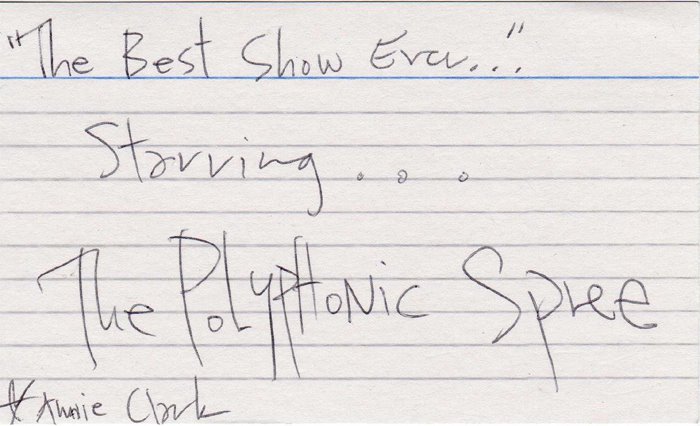 "The Best Show Ever..."
Starring...
The Polyphonic Spree
Annie Clark